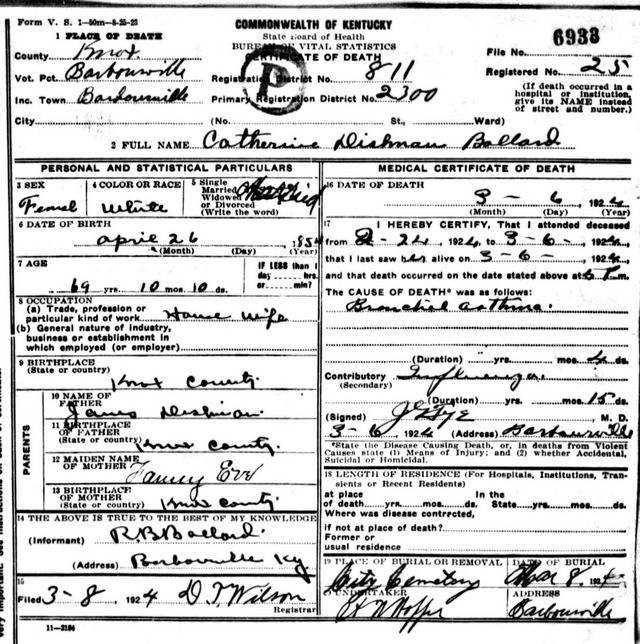 Form V. S. 1—50m—8-25-23
COMMONWEALTH OF KENTUCKY
State Board of Health
BUREAU OF VITAL STATISTICS
CERTIFICATE OF DEATH
P
6933
1 PLACE OF DEATH
County Knox
Vot. Pct. Barbourville
Inc. Town Barbourville
City (No. St., Ward)
Registration District No. 811
Primary Registration District No. 2300
File No.
Registered No. 25
(If death occurred in a hospital or institution, give its NAME instead of street and number.)
2 FULL NAME Catherine Dishman Ballard
PERSONAL AND STATISTICAL PARTICULARS
3 SEX
Femal
4 COLOR OR RACE
White
5 Single
Married
Widowed
or Divorced
(Write the word)
6 DATE OF BIRTH
april 26 , 1854
(Month) (Day) (Year)
7 AGE
69 yrs. 10 mos. 10 ds.
IF LESS than 1
day hrs.
or min?
8 OCCUPATION
(a) Trade, profession or
particular kind of work House wife
(b) General nature of industry,
business or establishment in
which employed (or employer)
9 BIRTHPLACE
(State or country)
Knox County.
PARENTS
10 NAME OF
FATHER
James Dishman
11 BIRTHPLACE
OF FATHER
(State or country) Knox County.
12 MAIDEN NAME
OF MOTHER Fanny Eve
13 BIRTHPLACE
OF MOTHER
(State or country) Knox County
14 THE ABOVE IS TRUE TO THE BEST OF MY KNOWLEDGE
(Informant) R B Ballard.
(Address) Barbourville Ky
15
Filed 3-8, 1924 D. T. Wilson
Registrar
11—3184
MEDICAL CERTIFICATE OF DEATH
16 DATE OF DEATH
3 - 6 , 1924
(Month) (Day) (Year)
17 I HEREBY CERTIFY, That I attended deceased
from 2-24, 1924, to 3-6-, 1924,
that I last saw her alive on 3-6-, 1924,
and that death occurred on the date stated above at m.
The CAUSE OF DEATH* was as follows:
Bronchial asthma.
(Duration) yrs. mos. 4 ds.
Contributory Influenza.
(Secondary)
(Duration) yrs. mos. 15 ds.
(Signed) M. D.
3-6, 1924 (Address) Barbourville
*State the Disease Causing Death, or, in deaths from Violent
Causes state (1) Means of Injury; and (2) whether Accidental,
Suicidal or Homicidal.
18 LENGTH OF RESIDENCE (For Hospitals, Institutions, Transients or Recent Residents)
at place In the
of death yrs. mos. ds. State yrs. mos. ds.
Where was disease contrrcted,
if not at place of death?
Former or
usual residence
19 PLACE OF BURIAL OR REMOVAL DATE OF BURIAL
City Cemetery Mar 8, 1924
20 UNDERTAKER ADDRESS
Barbourville